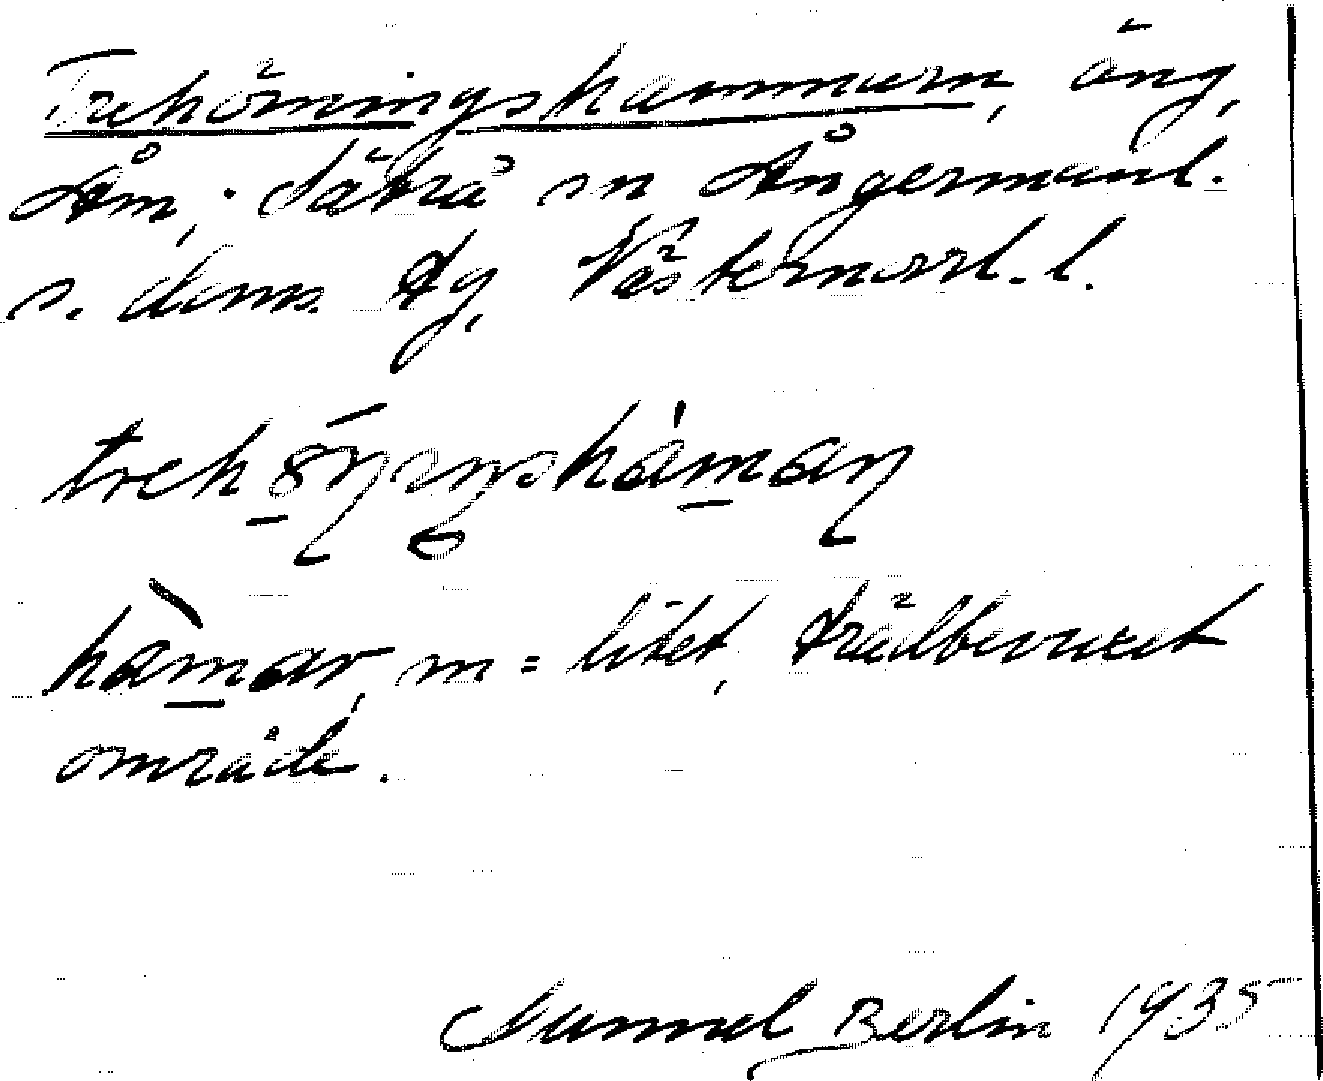 Trehörningshammarn, äng,
Åm, Säbrå sn Ångermanl.
s. doms. tg, Västernorrl. l.
trehö́ŋiŋshámaɳ
hàmar, m = litet, trädbevuxet
område.
Samuel Berlin 1935